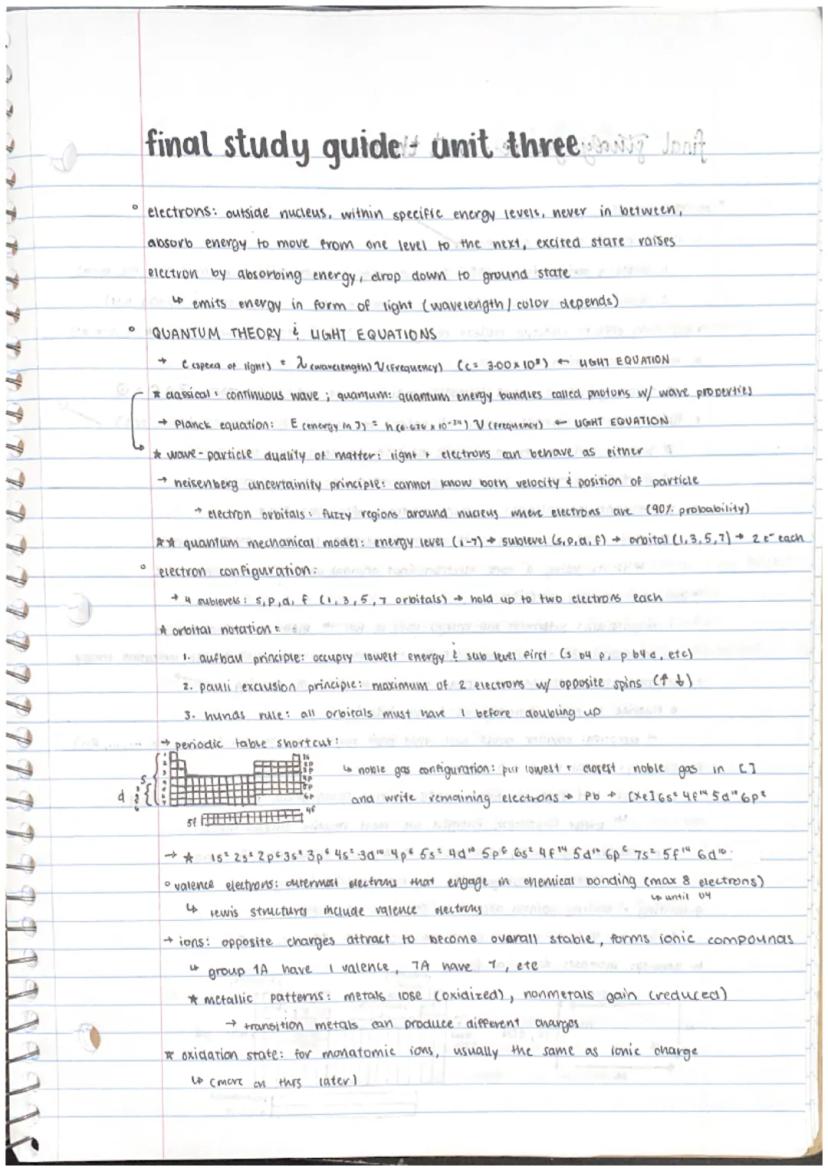 final study guide - unit three
° electrons: outside nucleus, within specific energy levels, never in between,
absorb energy to move from one level to the next, excited state raises
electron by absorbing energy, drop down to ground state
↳ emits energy in form of light (wavelength / color depends)
° QUANTUM THEORY & LIGHT EQUATIONS
→ c (speed of light) = λ (wavelength) ν (frequency) (c = 3.00 x 10⁸) ← LIGHT EQUATION
★ classical: continuous wave ; quantum: quantum energy bundles called photons w/ wave properties
→ Planck equation: E (energy in J) = h (6.626 x 10⁻³⁴) ν (frequency) ← LIGHT EQUATION
★ wave-particle duality of matter: light + electrons can behave as either
→ heisenberg uncertainity principle: cannot know both velocity & position of particle
→ electron orbitals: fuzzy regions around nucleus where electrons are (90% probability)
★★ quantum mechanical model: energy level (1-7) → sublevel (s, p, d, f) → orbital (1, 3, 5, 7) → 2 e⁻ each
° electron configuration:
→ 4 sublevels: s, p, d, f (1, 3, 5, 7 orbitals) → hold up to two electrons each
★ orbital notation:
1. aufbau principle: occupry lowest energy & sub level first (s b4 p, p b4 d, etc)
2. pauli exclusion principle: maximum of 2 electrons w/ opposite spins (↑ ↓)
3. hunds rule: all orbitals must have 1 before doubling up
→ periodic table shortcut:
↳ noble gas configuration: put lowest + closest noble gas in [ ]
and write remaining electrons → Pb → [Xe] 6s² 4f¹⁴ 5d¹⁰ 6p²
s
d
5f 4f
→ ★ 1s² 2s² 2p⁶ 3s² 3p⁶ 4s² 3d¹⁰ 4p⁶ 5s² 4d¹⁰ 5p⁶ 6s² 4f¹⁴ 5d¹⁰ 6p⁶ 7s² 5f¹⁴ 6d¹⁰
° valence electrons: outermost electrons that engage in chemical bonding (max 8 electrons)
↳ lewis structures include valence electrons
↳ until U4
→ ions: opposite charges attract to become overall stable, forms ionic compounds
↳ group 1A have 1 valence, 7A have 7, etc
★ metallic patterns: metals lose (oxidized), nonmetals gain (reduced)
→ transition metals can produce different charges
★ oxidation state: for monatomic ions, usually the same as ionic charge
↳ (more on this later)